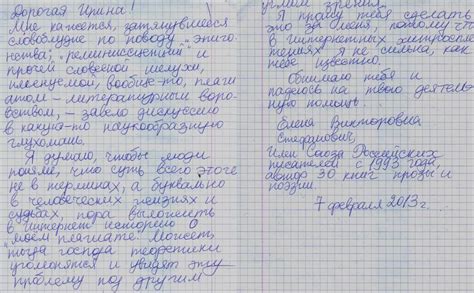 Дорогая Ирина!
Мне кажется, затянувшееся
словоблудие по поводу "эпиго-
нства", "реминисценций" и
прочей словесной шелухи,
именуемой, вообще-то, плаги
атом - литературным воро-
вством, - завело дискуссию
в какую-то наукообразную
глухомань.
Я думаю, чтобы люди
поняли, что суть всего этого
не в терминах, а буквально
в человеческих жизнях и
судьбах, пора выложить
в Интернет историю о
моём плагиате. Может
тогда господа теоретики
угомонятся и увидят эту
проблему под другим
углом зрения.
Я прошу тебя сделать
это за меня, потому что
в интернетных хитроспле
тениях я не сильна, как
тебе известно.
Обнимаю тебя и
надеюсь на твою деятель
ную помощь.
Елена Викторовна
Стефанович,
Член Союза Российских
писателей с 1993 года,
автор 30 книг прозы и
поэзии.
7 февраля 2013 г.